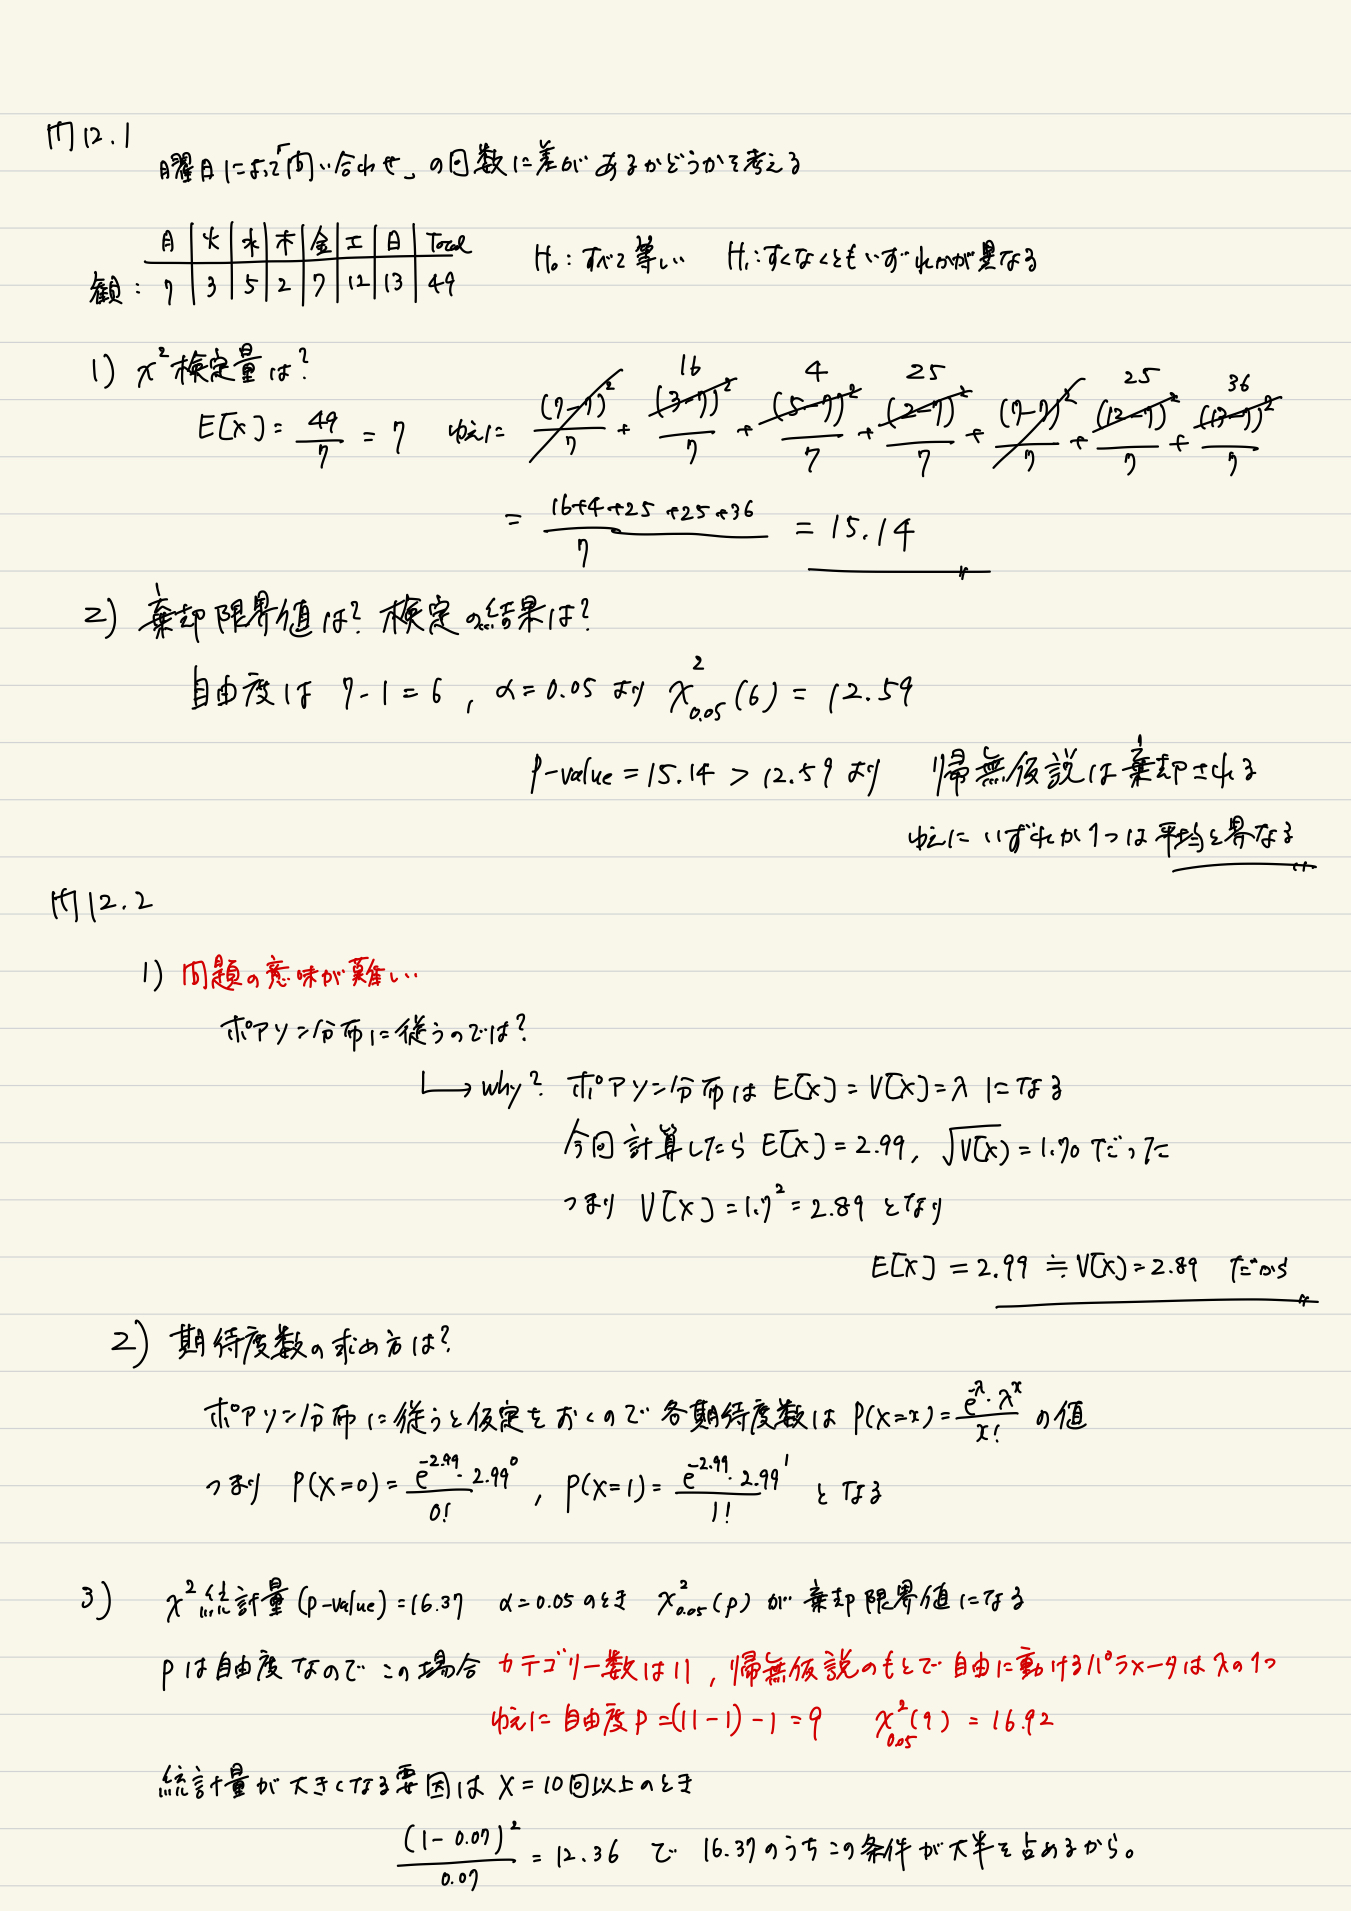 問12.1
曜日によって「問い合わせ」の回数に差があるかどうかを考える
月 火 水 木 金 土 日 Total
観: 7 3 5 2 7 12 13 49
H₀: すべて等しい H₁: すくなくともいずれかが異なる
1) χ²検定量は?
E[X] = 49/7 = 7 ゆえに (7-7)²/7 + (3-7)²/7 + (5-7)²/7 + (2-7)²/7 + (7-7)²/7 + (12-7)²/7 + (13-7)²/7
16 4 25 25 36
= 16+4+25+25+36/7 = 15.14
2) 棄却限界値は? 検定の結果は?
自由度は 7-1=6, α=0.05 より χ²₀.₀₅(6) = 12.59
P-value = 15.14 > 12.59 より 帰無仮説は棄却される
ゆえに いずれか1つは平均と異なる
問12.2
1) 問題の意味が難しい
ポアソン分布に従うのでは?
→ why? ポアソン分布は E[X] = V[X] = λ になる
今回計算したら E[X] = 2.99, √V[X] = 1.70 だった
つまり V[X] = 1.7² = 2.89 となり
E[X] = 2.99 ≒ V[X] = 2.89 だから
2) 期待度数の求め方は?
ポアソン分布に従うと仮定をおくので各期待度数は P(X=x) = e^-λ・λ^x/x! の値
つまり P(X=0) = e^-2.99・2.99⁰/0!, P(X=1) = e^-2.99・2.99¹/1! となる
3) χ²統計量(p-value) = 16.37 α=0.05のとき χ²₀.₀₅(p) が棄却限界値になる
pは自由度なのでこの場合 カテゴリー数は11, 帰無仮説のもとで自由に動けるパラメータはλの1つ
ゆえに 自由度P = (11-1)-1 = 9 χ²₀.₀₅(9) = 16.92
統計量が大きくなる要因は X=10回以上のとき
(1-0.07)²/0.07 = 12.36 で 16.37のうちこの条件が大半を占めるから。